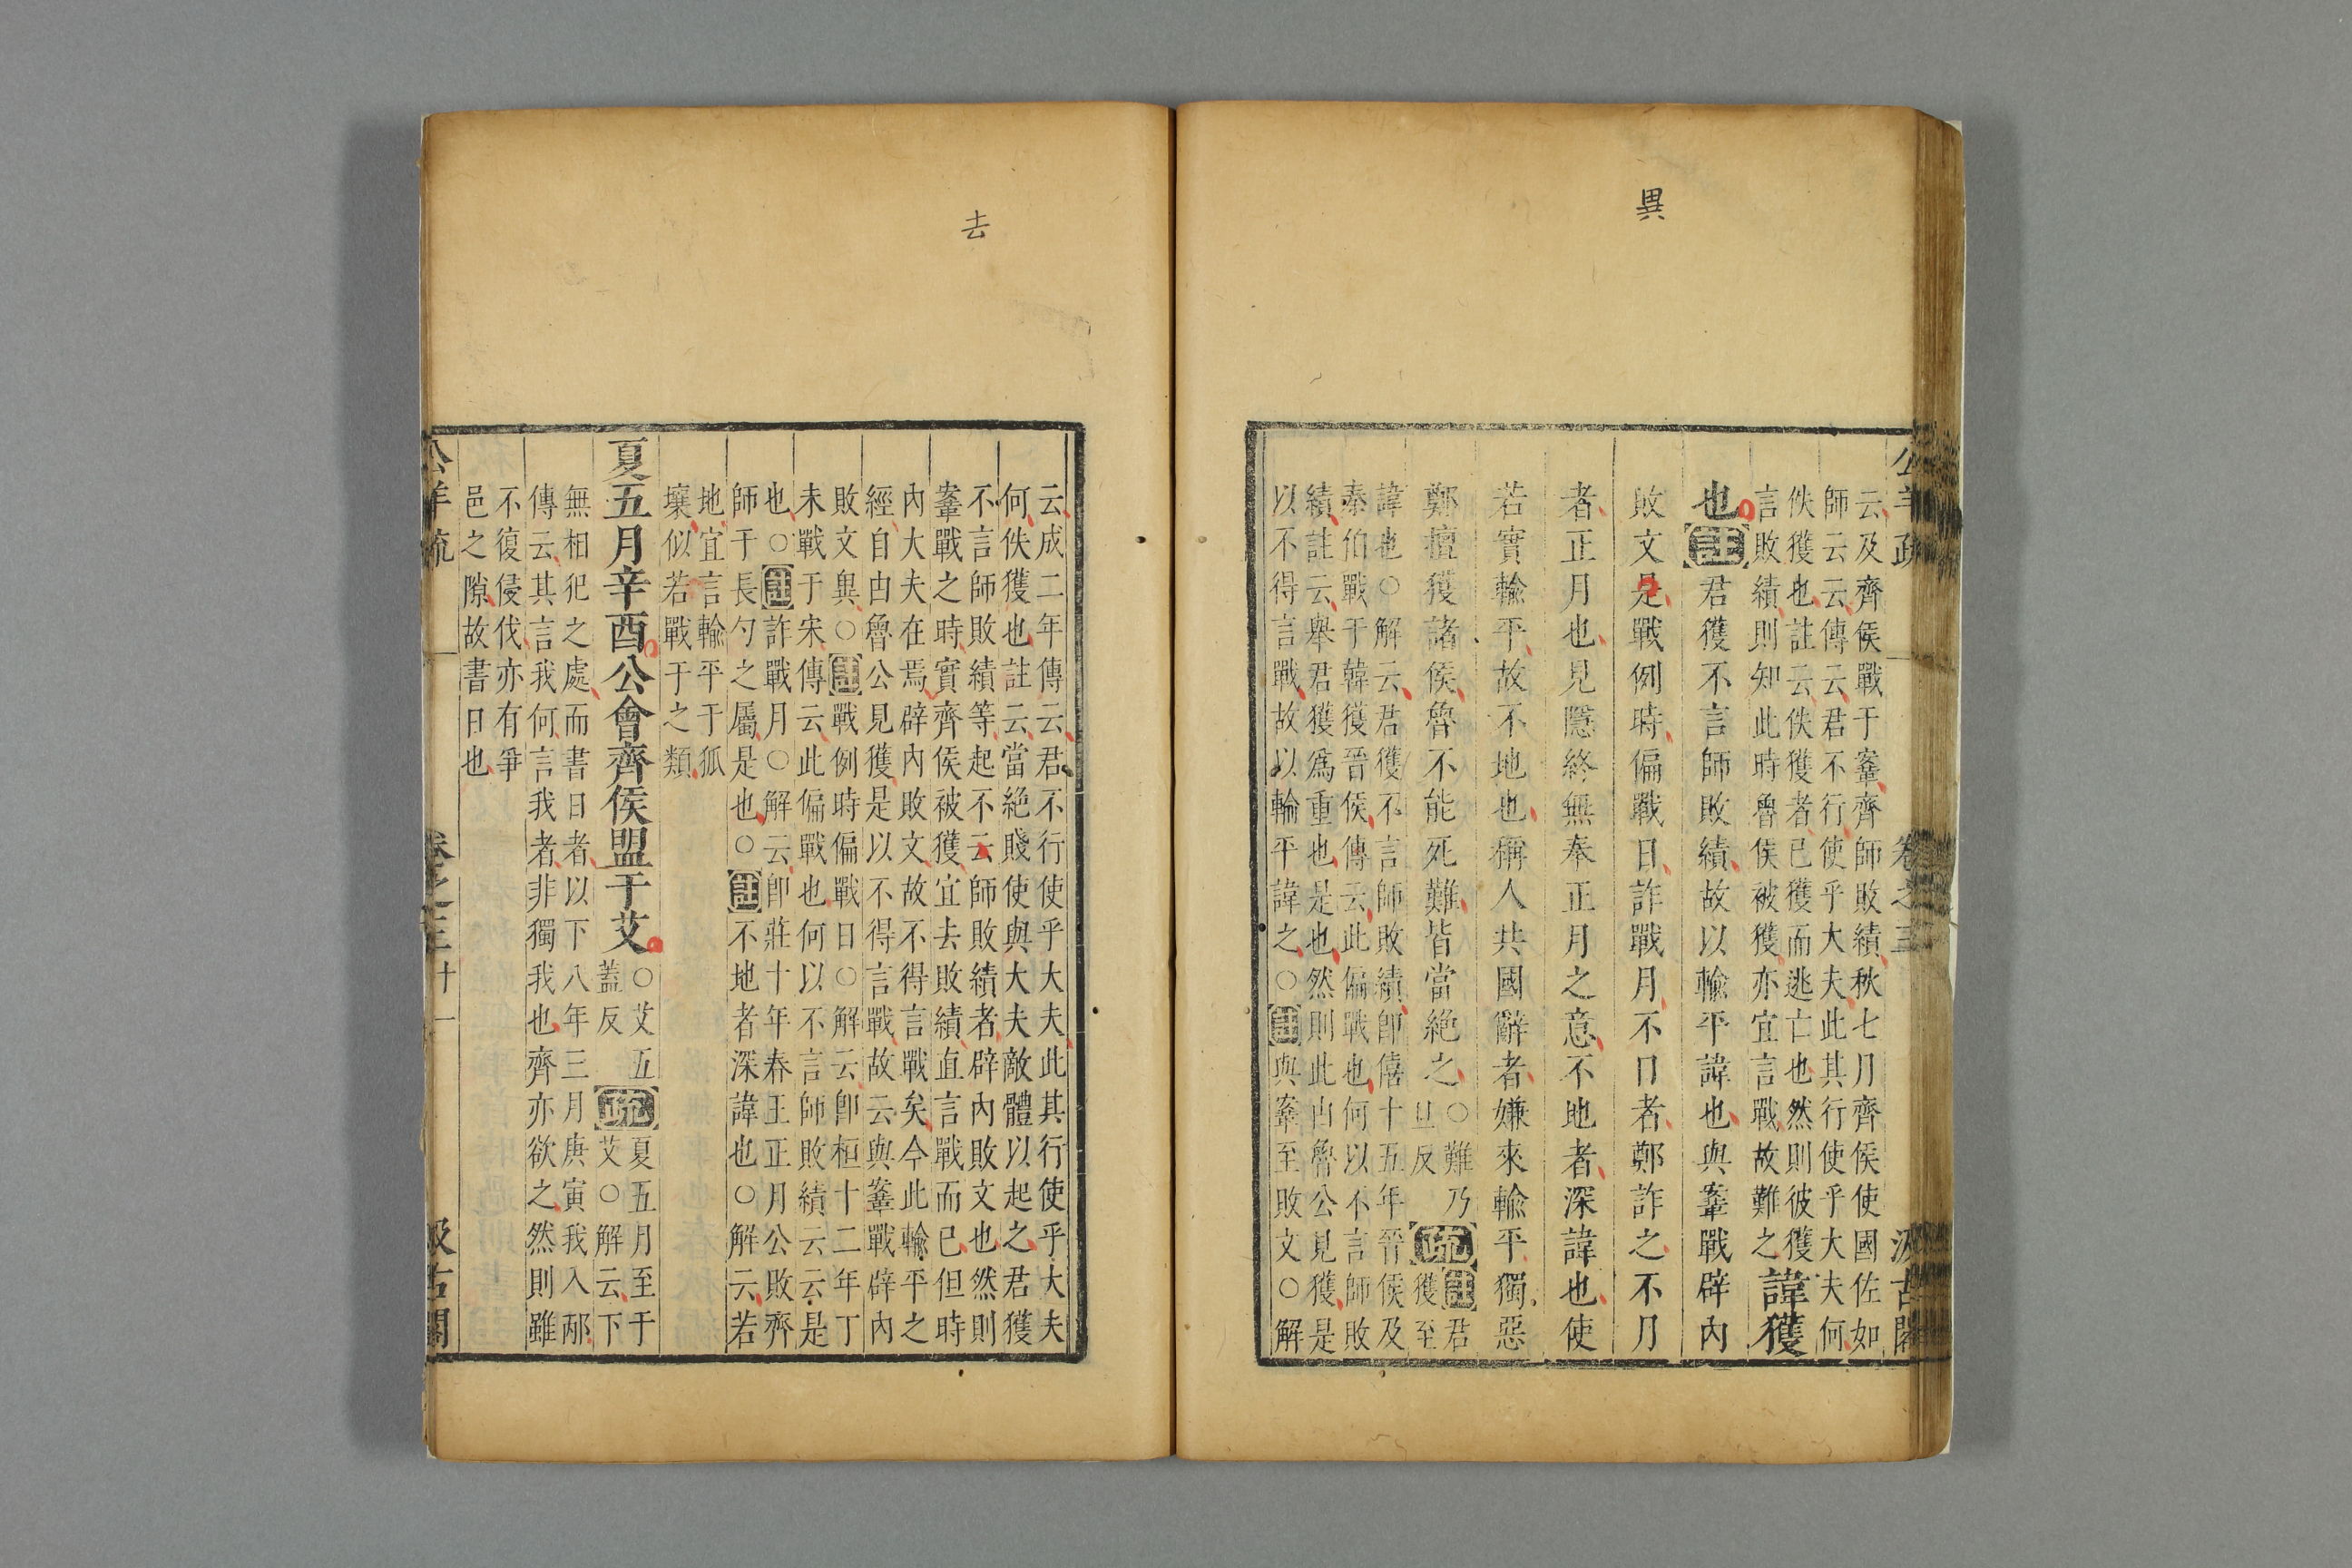 異
公羊疏 卷之三 汲古閣
云及齊侯戰于鞌齊師敗績秋七月齊侯使國佐如
師云云傳云君不行使乎大夫此其行使乎大夫何
佚獲也註云佚獲者已獲而逃亡也然則彼獲
言敗績則知此時魯侯被獲亦宜言戰故難之
諱獲
也註君獲不言師敗績故以輸平諱也與鞌戰辟內
敗文是戰例時偏戰日詐戰月不日者鄭詐之不月
者正月也見隱終無奉正月之意不地者深諱也使
若實輸平故不地也稱人共國辭者嫌來輸平獨惡
鄭擅獲諸侯魯不能死難皆當絕之
○難乃
旦反
疏
註君
獲至
諱也○解云君獲不言師敗績即僖十五年晉侯及
秦伯戰于韓獲晉侯傳云此偏戰也何以不言師敗
績註云舉君獲爲重也是也然則此由魯公見獲是
以不得言戰故以輸平諱之○註與鞌至敗文○解
去
云成二年傳云君不行使乎大夫此其行使乎大夫
何佚獲也註云當絕賤使與大夫敵體以起之君獲
不言師敗績等起不云師敗績者辟內敗文也然則
鞌戰之時實齊侯被獲宜去敗績直言戰而已但時
內大夫在焉辟內敗文故不得言戰矣今此輸平之
經自由魯公見獲是以不得言戰故云與鞌戰辟內
敗文異○註戰例時偏戰日○解云即桓十二年丁
未戰于宋傳云此偏戰也何以不言師敗績云云是
也○註詐戰月○解云即莊十年春王正月公敗齊
師于長勺之屬是也○註不地者深諱也○解云若
地宜言輸平于狐
壤似若戰于之類
夏五月辛酉公會齊侯盟于艾
○艾五
蓋反
疏
夏五月至于
艾○解云下
無相犯之處而書日者以下八年三月庚寅我入邴
傳云其言我何言我者非獨我也齊亦欲之然則雖
不復侵伐亦有爭
邑之隙故書日也
公羊疏 卷之三 十一 汲古閣